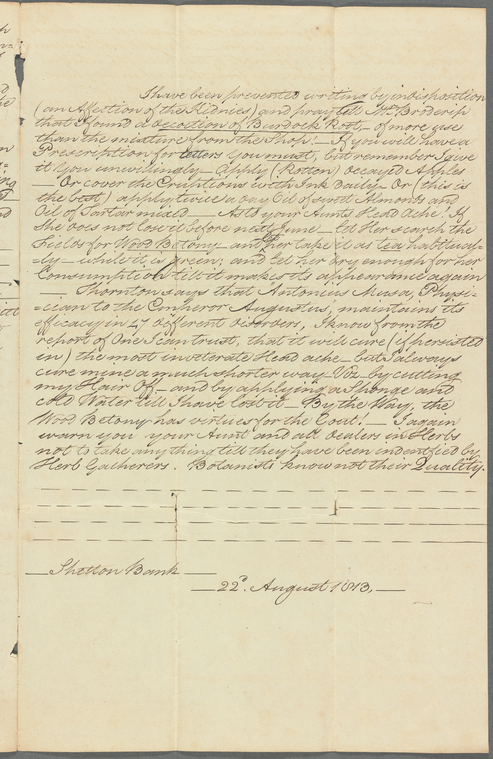 I have been prevented writing by indisposition
(an Affection of the Kidnies) and pray tell Mrs. Broderip
that I found a Decoction of Burdock Root – of more use
than the mixture from the Shop. – If you will have a
Prescription for tetters you must, but remember I give
it you unwillingly – Apply (Rotten) decayed Apples
– Or cover the Eruptions with Ink Daily – Or (this is
the best) apply twice a day Oil of sweet Almonds and
Oil of Tartar mixed – As to your Aunts Head Ache. If
She does not lose it before next June – let Her search the
Fields for Wood Betony – and Her take it as tea habitual-
=ly – while it is green; and let her dry enough for her
Consumption till it makes its appearance again
– Thornton says that Antonius Musa, Physi-
=cian to the Emperor Augustus, maintains its
efficacy in 47 different disorders, I know from the
report of One I can trust, that it will cure (if persisted
in) the most inveterate Head ache – but I always
cure mine a much shorter way – Viz by cutting
my Hair Off – and by applying a Sponge and
cold Water till I have lost it – By the Way, the
Wood Betony has virtues for the Gout. – I again
warn you your Aunt and all dealers in Herbs
not to take any thing till they have been indentified by
Herb Gatherers. Botanists know not their Quality.
– Shelton Bank –
– 22d. August 1813. –